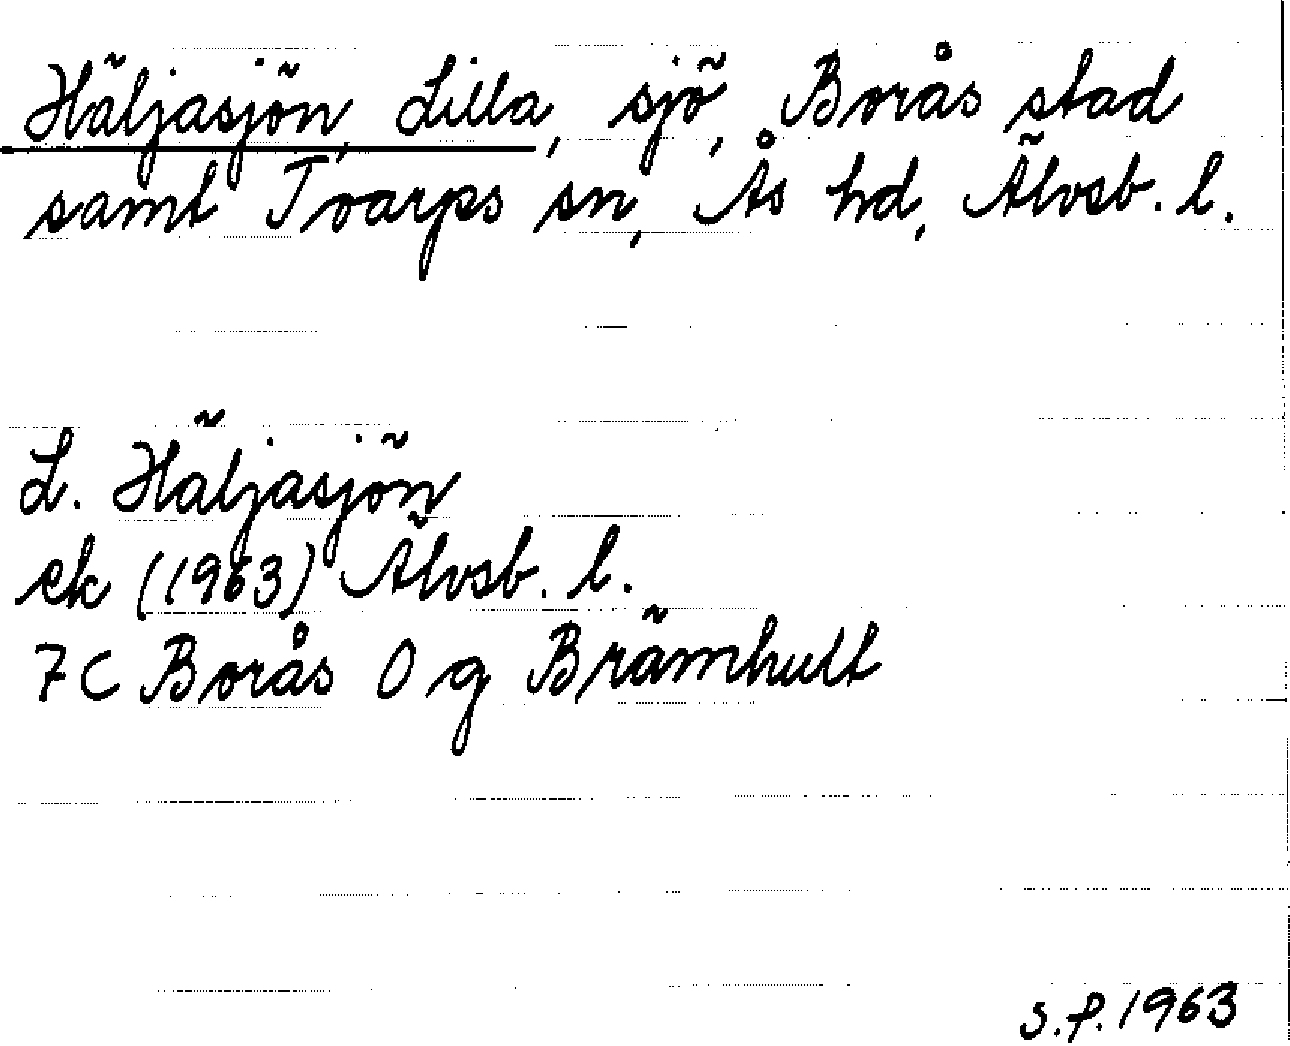 Häljasjön, Lilla, sjö, Borås stad
samt Toarps sn, Ås hd, Älvsb. l.
L. Häljasjön
ek (1963) Älvsb. l.
7C Borås 0 g Brämhult
S.f. 1963